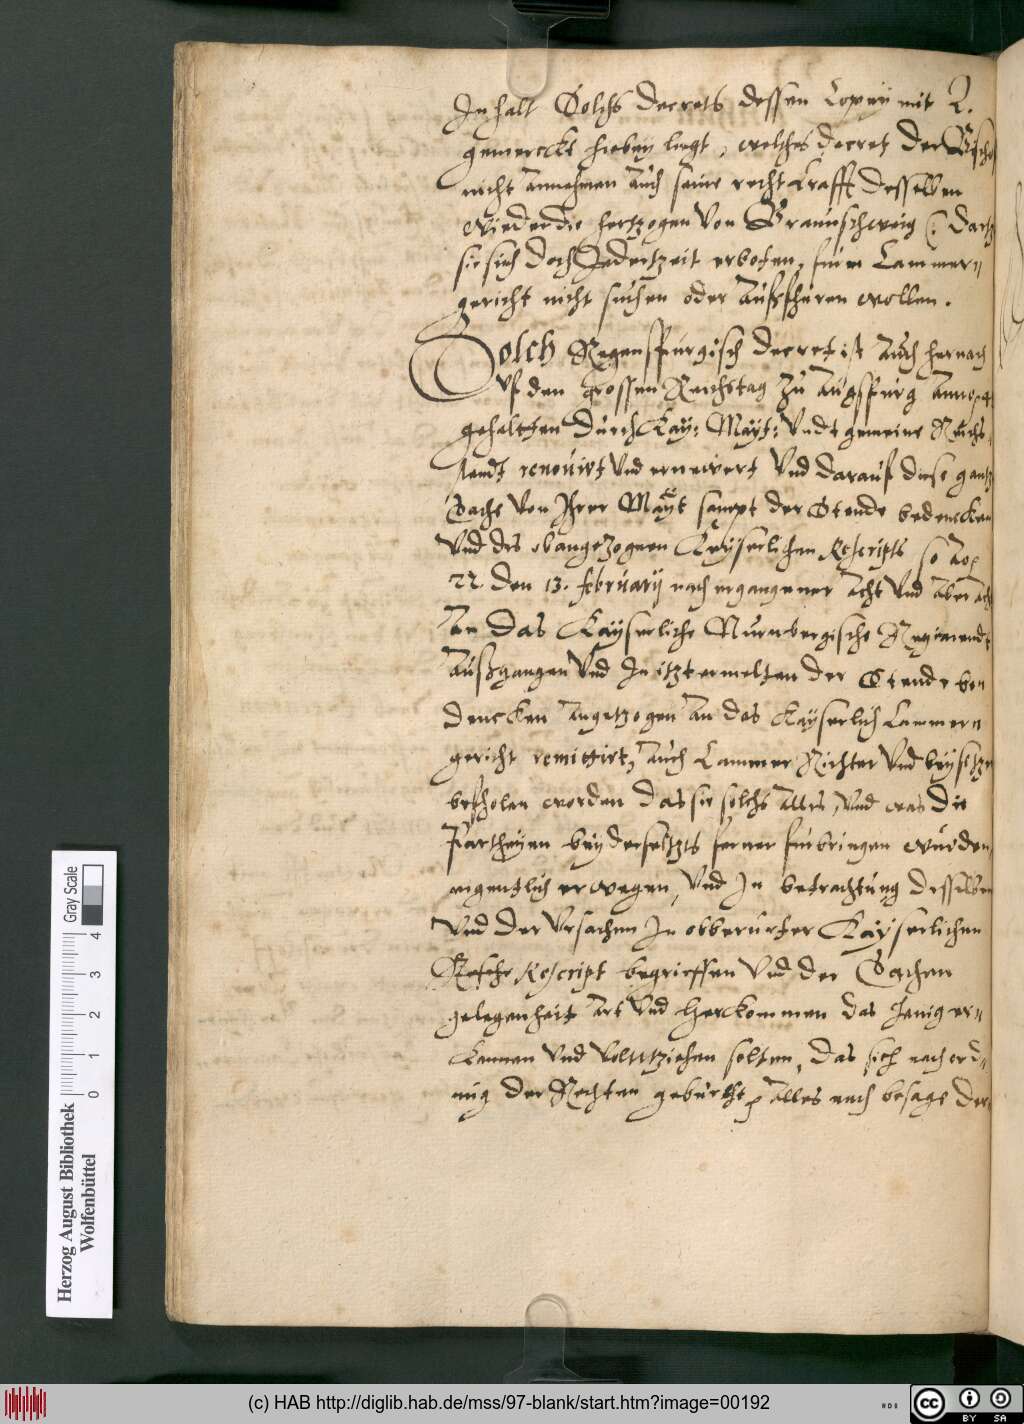 Inhalt Solchs decrets dessen Copey mit Q.
gemerckt hiebey ligt, welches decret der Bischof
nicht annehmen auch seine recht krafft desselben
wieder die hertzogen Von Braunschweig (: dartzu
sie sich doch Jedertzeit erboten, fur m Cammer„
gericht nicht suchen oder außfhuren wollen.
Solch Regenspurgisch decret ist auch hernach
Uf den grossen Reichstag zu Augspurg Anno
gehaltten durch Kay: Mayt: Undt gemeine Reichs„
stendt renovirt Und ernewert Und darauf diese gantze
Sache Von Ihrer Mayt sampt der Stende bedencken
Und des obangezognen Keyserlichen Rescripts so Ao
22 den 13. february nach ergangener Acht Und Aberacht
An das Kayserliche Nurnbergische Regimendt
Außgangen Und In itztermelten der Stende be„
dencken angetzogen an das Kayserlich Cammern
gericht remittirt, auch Cammer Richter Und beysetzer
befholen worden das sie solchs alles, Und was die
Partheyen beyderseitzts ferner furbringen wurden,
eigentlich erwegen, Und In betrachtung desselben
Und der Ursachen In obberurter Kayserlichen
Rescript begrieffen Und der Sachen
gelegenheit art Und herckommen das Jenig er„
kennen Und Volntziehen solten, das sich nach ord„
nug der Rechten geburtht, alles nach besage der
Herzog August Bibliothek
Wolfenbüttel
0 1 2 3 4
Gray Scale
(c) HAB http://diglib.hab.de/mss/97-blank/start.htm?image=00192
cc BY SA